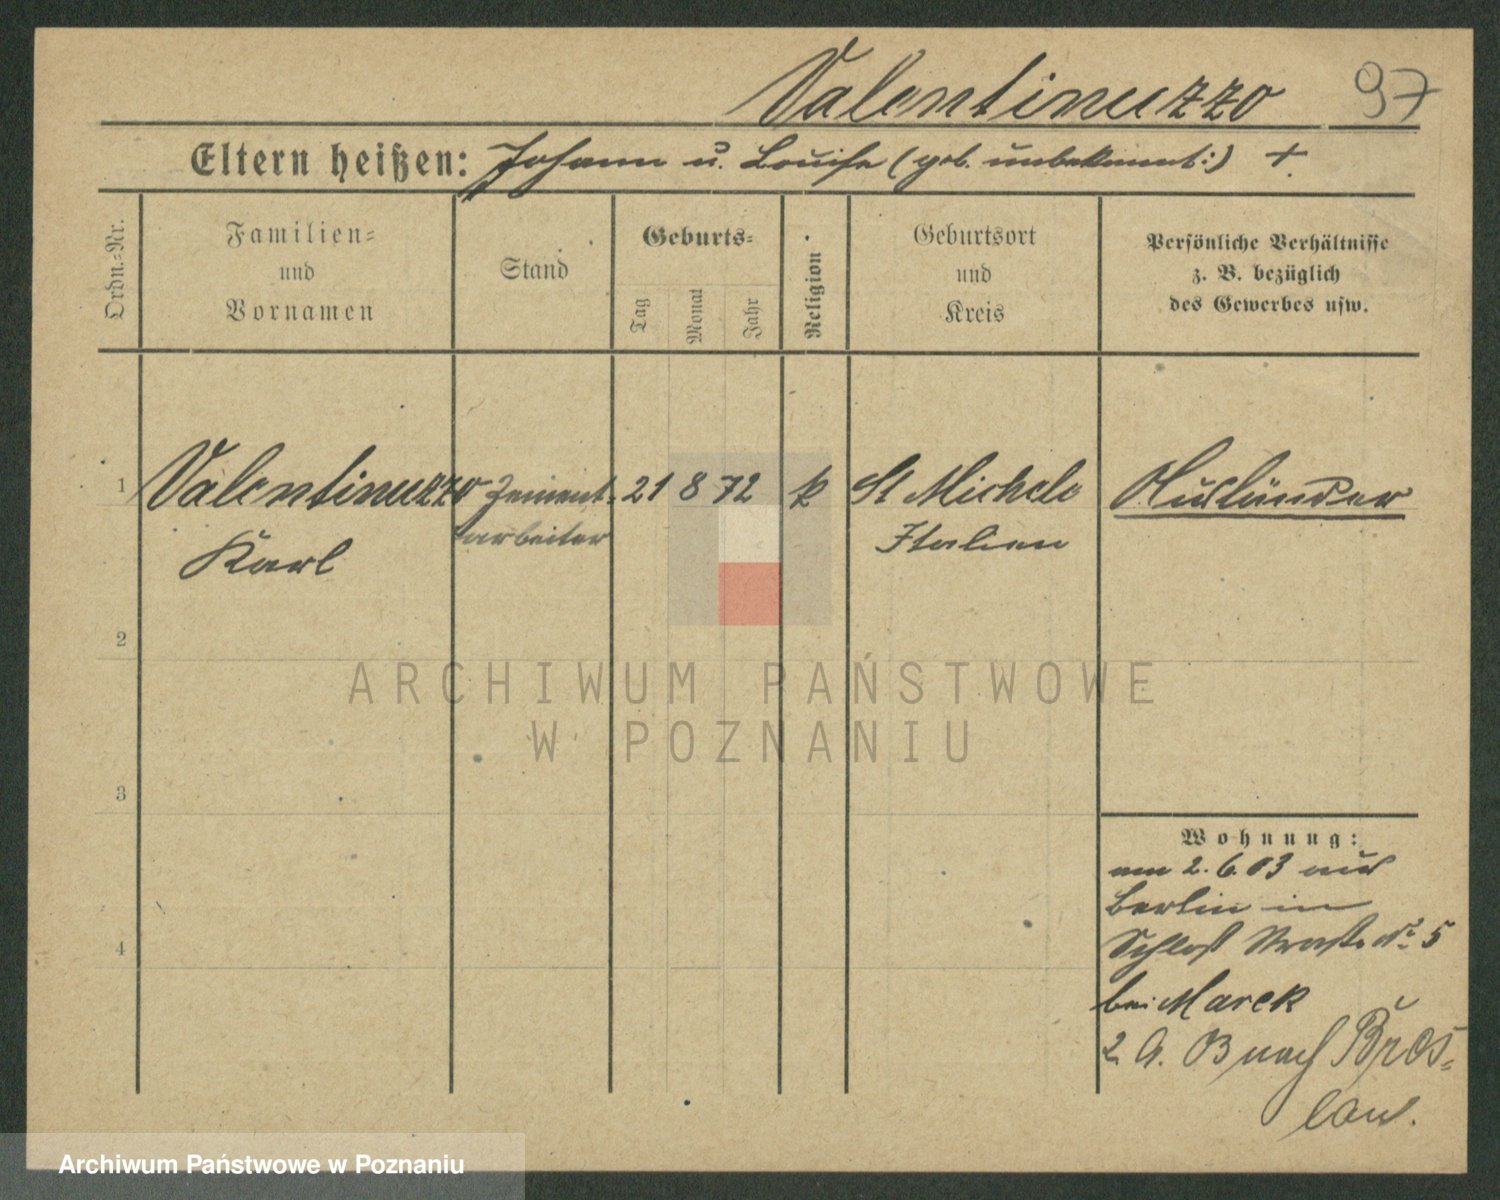 Valentinuzzo 97
Eltern heißen: Johann u. Louise (geb. unbekannt:) +.
Ordn.-Nr.
Familien-
und
Vornamen
Stand
Geburts-
Tag
Monat
Jahr
Religion
Geburtsort
und
Kreis
Persönliche Verhältnisse
z. B. bezüglich
des Gewerbes usw.
1 Valentinuzzo Zement- 21 8 72 k St Michele Ausländer
Karl arbeiter Italien
2
3
4
Wohnung:
am 2. 6. 03 aus
Berlin in
Schloß Straße No 5
bei Marek
2. 03 nach Bres-
lau.
ARCHIWUM PAŃSTWOWE
W POZNANIU
Archiwum Państwowe w Poznaniu